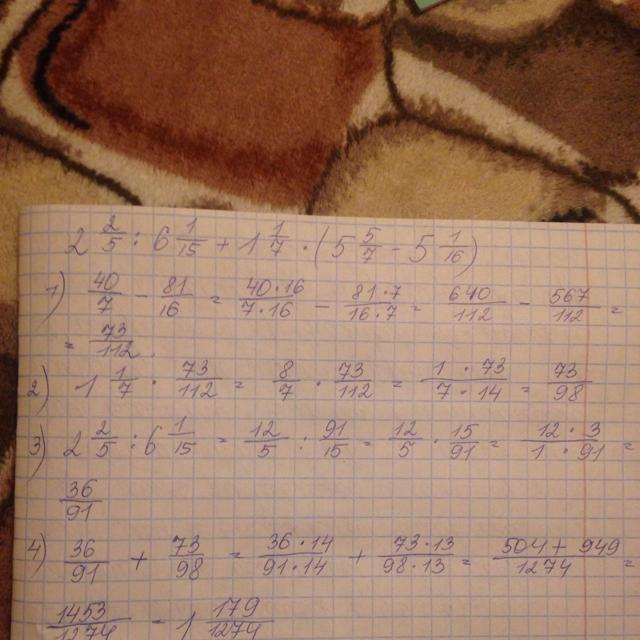 2 2/5 : 6 1/15 + 1 1/7 · (5 5/7 - 5 1/16)
1) 40/7 - 81/16 = 40·16/7·16 - 81·7/16·7 = 640/112 - 567/112 =
= 73/112.
2) 1 1/7 · 73/112 = 8/7 · 73/112 = 1·73/7·14 = 73/98
3) 2 2/5 : 6 1/15 = 12/5 : 91/15 = 12/5 · 15/91 = 12·3/1·91 =
36/91
4) 36/91 + 73/98 = 36·14/91·14 + 73·13/98·13 = 504+949/1274 =
1453/1274 - 1 179/1274